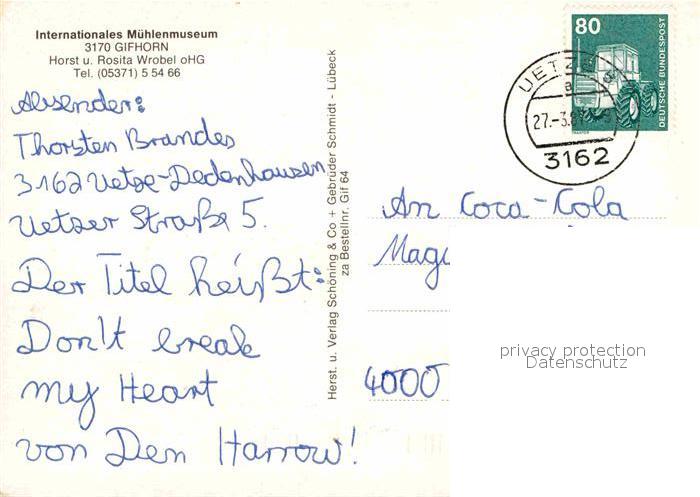 Internationales Mühlenmuseum
3170 GIFHORN
Horst u. Rosita Wrobel oHG
Tel. (05371) 5 54 66
Absender:
Thorsten Brandes
3162 Uetze-Dedenhausen
Uetzer Straße 5.
Der Titel heißt:
Don't break
my Heart
von Den Harrow!
Herst. u. Verlag Schöning & Co + Gebrüder Schmidt - Lübeck
za Bestellnr. Gif 64
80
DEUTSCHE BUNDESPOST
TRAKTOR
UETZE
a
27.-3.8
3162
An Coca-Cola
Mag
4000
privacy protection
Datenschutz